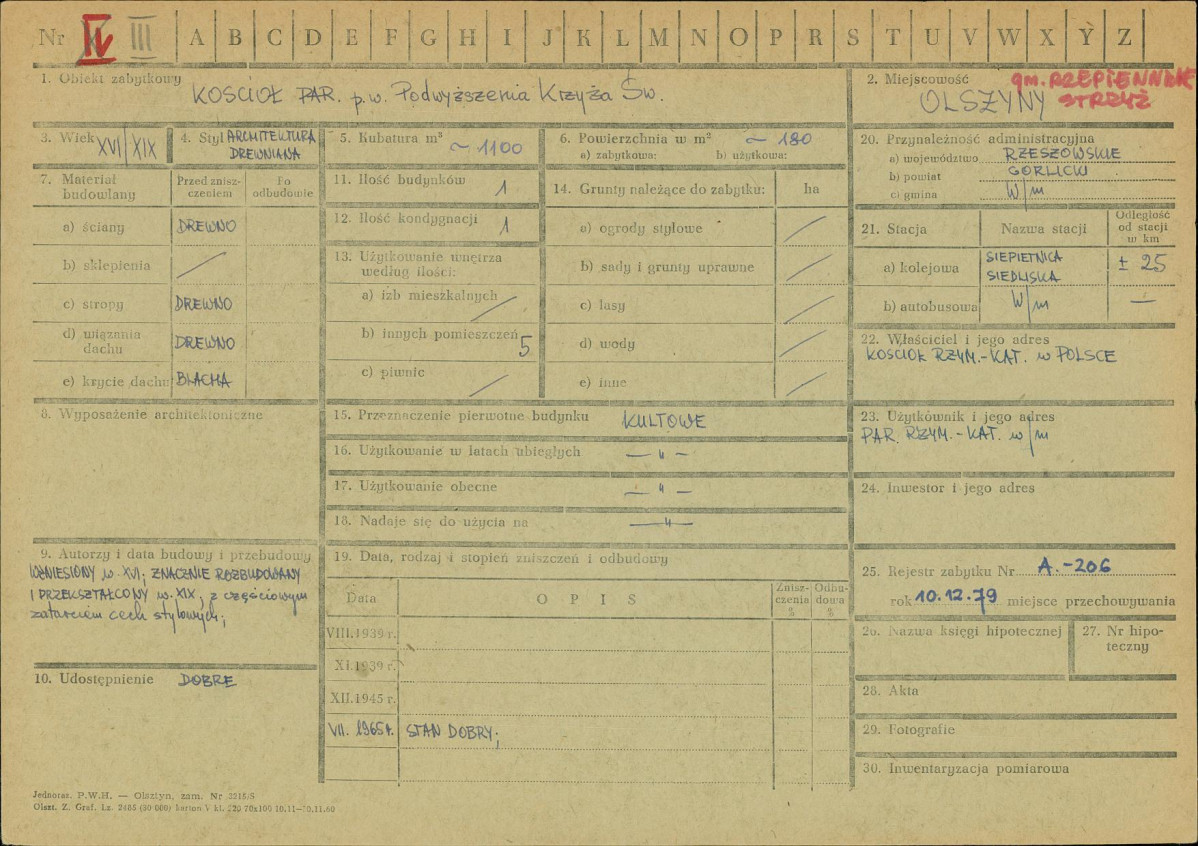 Nr IV III A B C D E F G H I J K L M N O P R S T U V W X Y Z
1. Obiekt zabytkowy
KOSCIOŁ PAR. p.w. Podwyższenia Krzyża Św.
2. Miejscowość
gm. RZEPIENNIK
OLSZYNY STRZYŻ
3. Wiek XVI/XIX
4. Styl ARCHITEKTURA
DREWNIANA
5. Kubatura m³ ~ 1100
6. Powierzchnia w m² ~ 180
a) zabytkowa: b) użytkowa:
7. Materiał
budowlany
Przed znisz-
czeniem
Po
odbudowie
a) ściany DREWNO
b) sklepienia /
c) stropy DREWNO
d) wiązania
dachu DREWNO
e) krycie dachu BLACHA
8. Wyposażenie architektoniczne
9. Autorzy i data budowy i przebudowy
WZNIESIONY w. XVI; ZNACZNIE ROZBUDOWANY
I PRZEKSZTAŁCONY w. XIX, z częściowym
zatarciem cech stylowych;
10. Udostępnienie DOBRE
11. Ilość budynków 1
12. Ilość kondygnacji 1
13. Użytkowanie wnętrza
według ilości:
a) izb mieszkalnych /
b) innych pomieszczeń 5
c) piwnic /
14. Grunty należące do zabytku: ha
a) ogrody stylowe /
b) sady i grunty uprawne /
c) lasy /
d) wody /
e) inne /
15. Przeznaczenie pierwotne budynku KULTOWE
16. Użytkowanie w latach ubiegłych — " —
17. Użytkowanie obecne — " —
18. Nadaje się do użycia na — " —
19. Data, rodzaj i stopień zniszczeń i odbudowy
Data OPIS
Znisz-
czenia
%
Odbu-
dowa
%
VIII.1939 r.
XI.1939 r.
XII.1945 r.
VII. 1965r. STAN DOBRY;
20. Przynależność administracyjna
a) województwo RZESZOWSKIE
b) powiat GORLICKI
c) gmina W/m
21. Stacja Nazwa stacji
Odległość
od stacji
w km
a) kolejowa SIEPIETNICA
SIEDLISKA ± 25
b) autobusowa W/m —
22. Właściciel i jego adres
KOSCIOŁ RZYM.-KAT. w POLSCE
23. Użytkownik i jego adres
PAR. RZYM.-KAT. w/m
24. Inwestor i jego adres
25. Rejestr zabytku Nr A.-206
rok 10.12.79 miejsce przechowywania
26. Nazwa księgi hipotecznej
27. Nr hipo-
teczny
28. Akta
29. Fotografie
30. Inwentaryzacja pomiarowa
Jednoraz. P.W.H. — Olsztyn, zam. Nr 2215/S
Olszt. Z. Graf. Lz. 2485 (50 000) karton V kl. 220 70x100 10.11—30.11.60